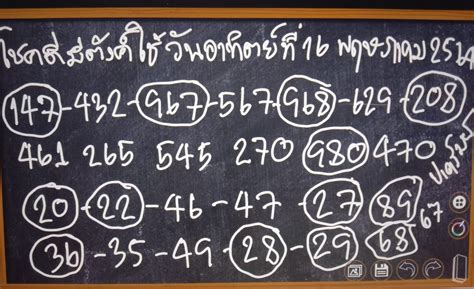 โชคดีมีตังค์ใช้ วันอาทิตย์ที่ 16 พฤษภาคม 2564
147-432-967-567-968-629-208
461 265 545 270 980 470
20-22-46-47-27 89 67
36-35-49-28-29 68